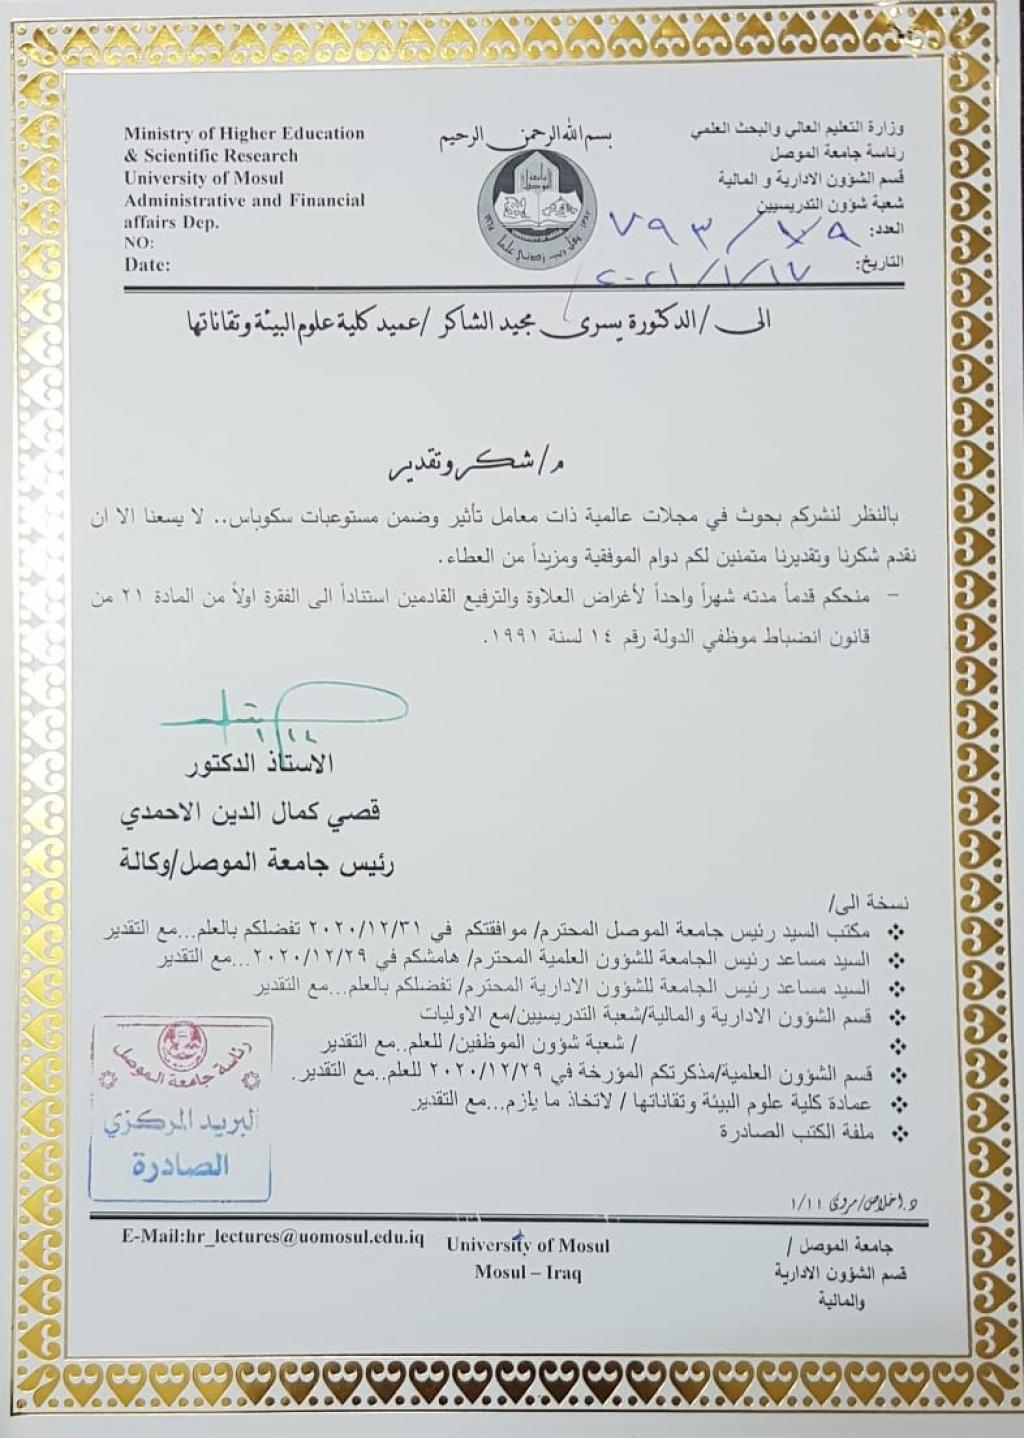 بسم الله الرحمن الرحيم
Ministry of Higher Education
& Scientific Research
University of Mosul
Administrative and Financial
affairs Dep.
NO:
Date:
وزارة التعليم العالي والبحث العلمي
رئاسة جامعة الموصل
قسم الشؤون الادارية و المالية
شعبة شؤون التدريسيين
العدد:
التاريخ: ٢٠٢١/١/١٧
الى /الدكتورة يسرى مجيد الشاكر /عميد كلية علوم البيئة وتقاناتها
م/ شكر وتقدير
بالنظر لنشركم بحوث في مجلات عالمية ذات معامل تأثير وضمن مستوعبات سكوباس.. لا يسعنا الا ان
نقدم شكرنا وتقديرنا متمنين لكم دوام الموفقية ومزيداً من العطاء.
- منحكم قدماً مدته شهراً واحداً لأغراض العلاوة والترفيع القادمين استناداً الى الفقرة اولاً من المادة ٢١ من
قانون انضباط موظفي الدولة رقم ١٤ لسنة ١٩٩١.
الاستاذ الدكتور
قصي كمال الدين الاحمدي
رئيس جامعة الموصل/وكالة
نسخة الى/
مكتب السيد رئيس جامعة الموصل المحترم/ موافقتكم في ٢٠٢٠/١٢/٣١ تفضلكم بالعلم...مع التقدير
السيد مساعد رئيس الجامعة للشؤون العلمية المحترم/ هامشكم في ٢٠٢٠/١٢/٢٩...مع التقدير
السيد مساعد رئيس الجامعة للشؤون الادارية المحترم/ تفضلكم بالعلم...مع التقدير
قسم الشؤون الادارية والمالية/شعبة التدريسيين/مع الاوليات
/ شعبة شؤون الموظفين/ للعلم..مع التقدير
قسم الشؤون العلمية/مذكرتكم المؤرخة في ٢٠٢٠/١٢/٢٩ للعلم..مع التقدير.
عمادة كلية علوم البيئة وتقاناتها / لاتخاذ ما يلزم...مع التقدير
ملفة الكتب الصادرة
رئاسة جامعة الموصل
البريد المركزي
الصادرة
د.اخلاص/مروى ١/١١
E-Mail:hr_lectures@uomosul.edu.iq
University of Mosul
Mosul – Iraq
جامعة الموصل /
قسم الشؤون الادارية
والمالية